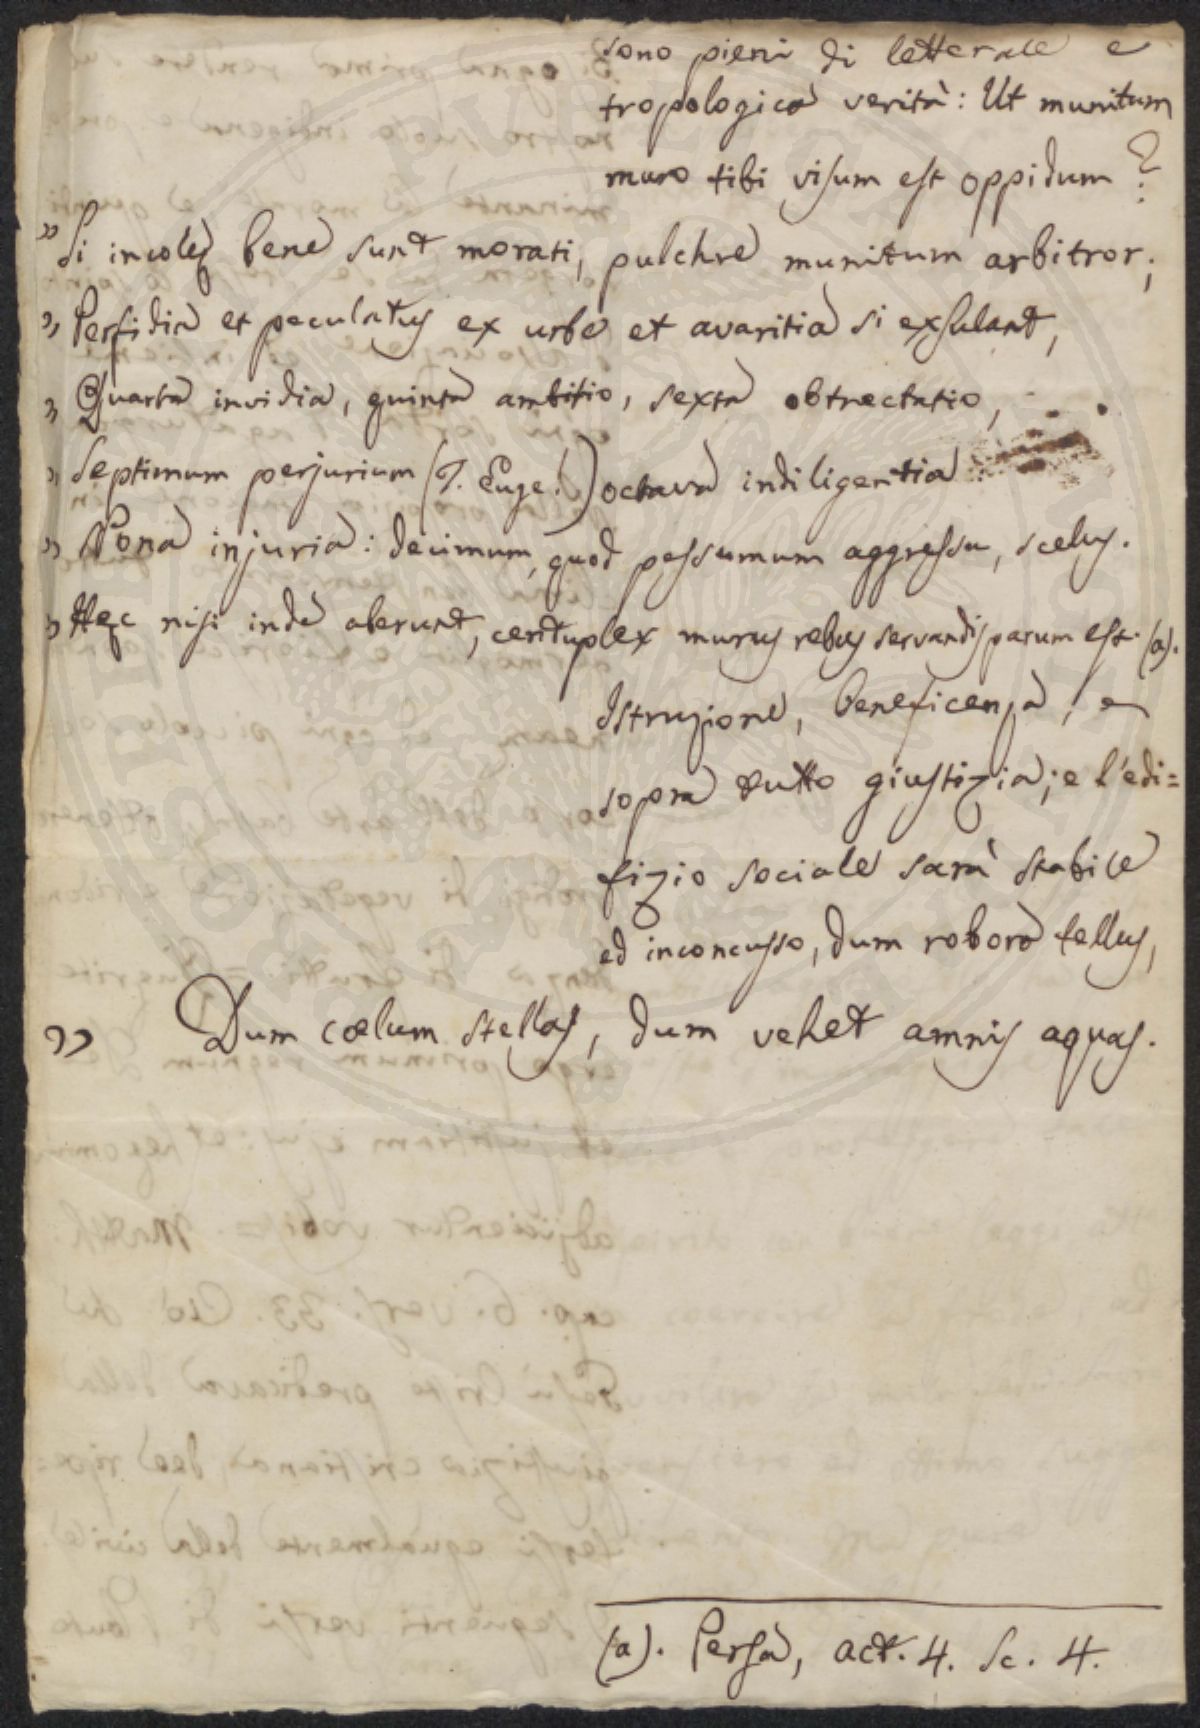 sono pieni di letterale e
tropologica verità: Ut munitum
muro tibi visum est oppidum?
" Si incolę bene sunt morati, pulchre munitum arbitror;
" Perfidia et peculatus ex urbe et avaritia si exsulant,
" Quarta invidia, quinta ambitio, sexta obtrectatio,
" Septimum perjurium (T. Euge!) octava indiligentia:
" Nona injuria: decimum, quod pessumum aggressu, scelus.
" Hęc nisi inde aberunt, centuplex murus rebus servandis parum est. (a).
Istruzione, beneficenza, e
sopra tutto giustizia; e l'edi=
fizio sociale sarà stabile
ed inconcusso, dum robora tellus,
" Dum cœlum stellas, dum vehet amnis aquas.
(a). Persa, act. 4. Sc. 4.